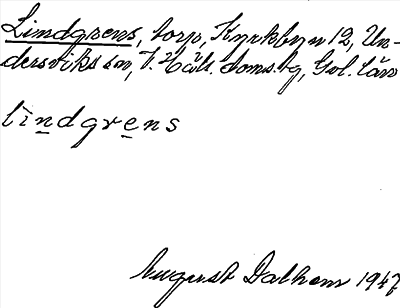 Lindgrens, torp, Kyrkbyn 12, Un-
dersviks sn, V. Häls. doms.g, Gvl. län
lindgrens
August Dalhem 1947